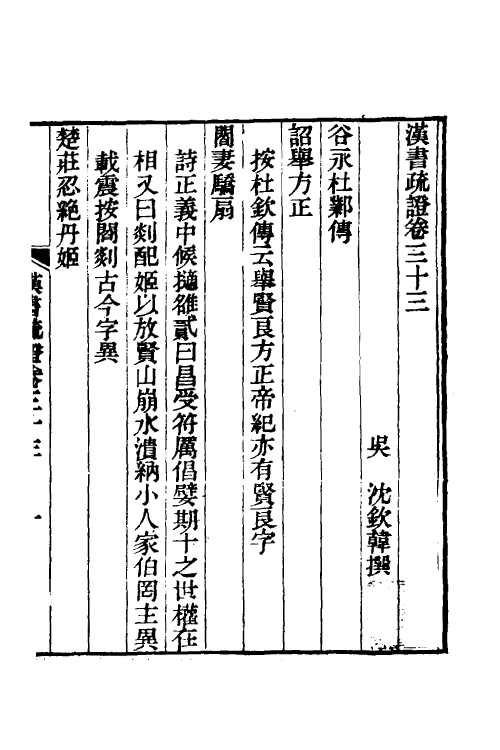 漢書疏證卷三十三
吳 沈欽韓撰
谷永杜鄴傳
詔舉方正
按杜欽傳云舉賢良方正帝紀亦有賢良字
閻妻驕扇
詩正義中候擿雒貳曰昌受符厲倡嬖期十之世權在
相又曰剡配姬以放賢山崩水潰納小人家伯罔主異
載震按閻剡古今字異
楚莊忍絕丹姬
漢書疏證卷三十三 一